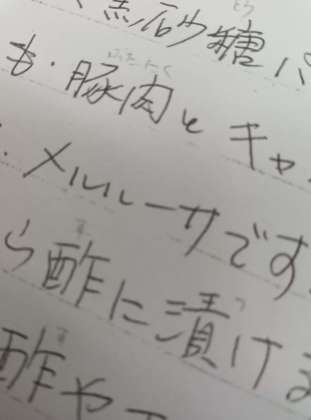 黒砂糖パ
も・豚肉とキャ
・メルルーサです
ら酢に漬けま
酢や